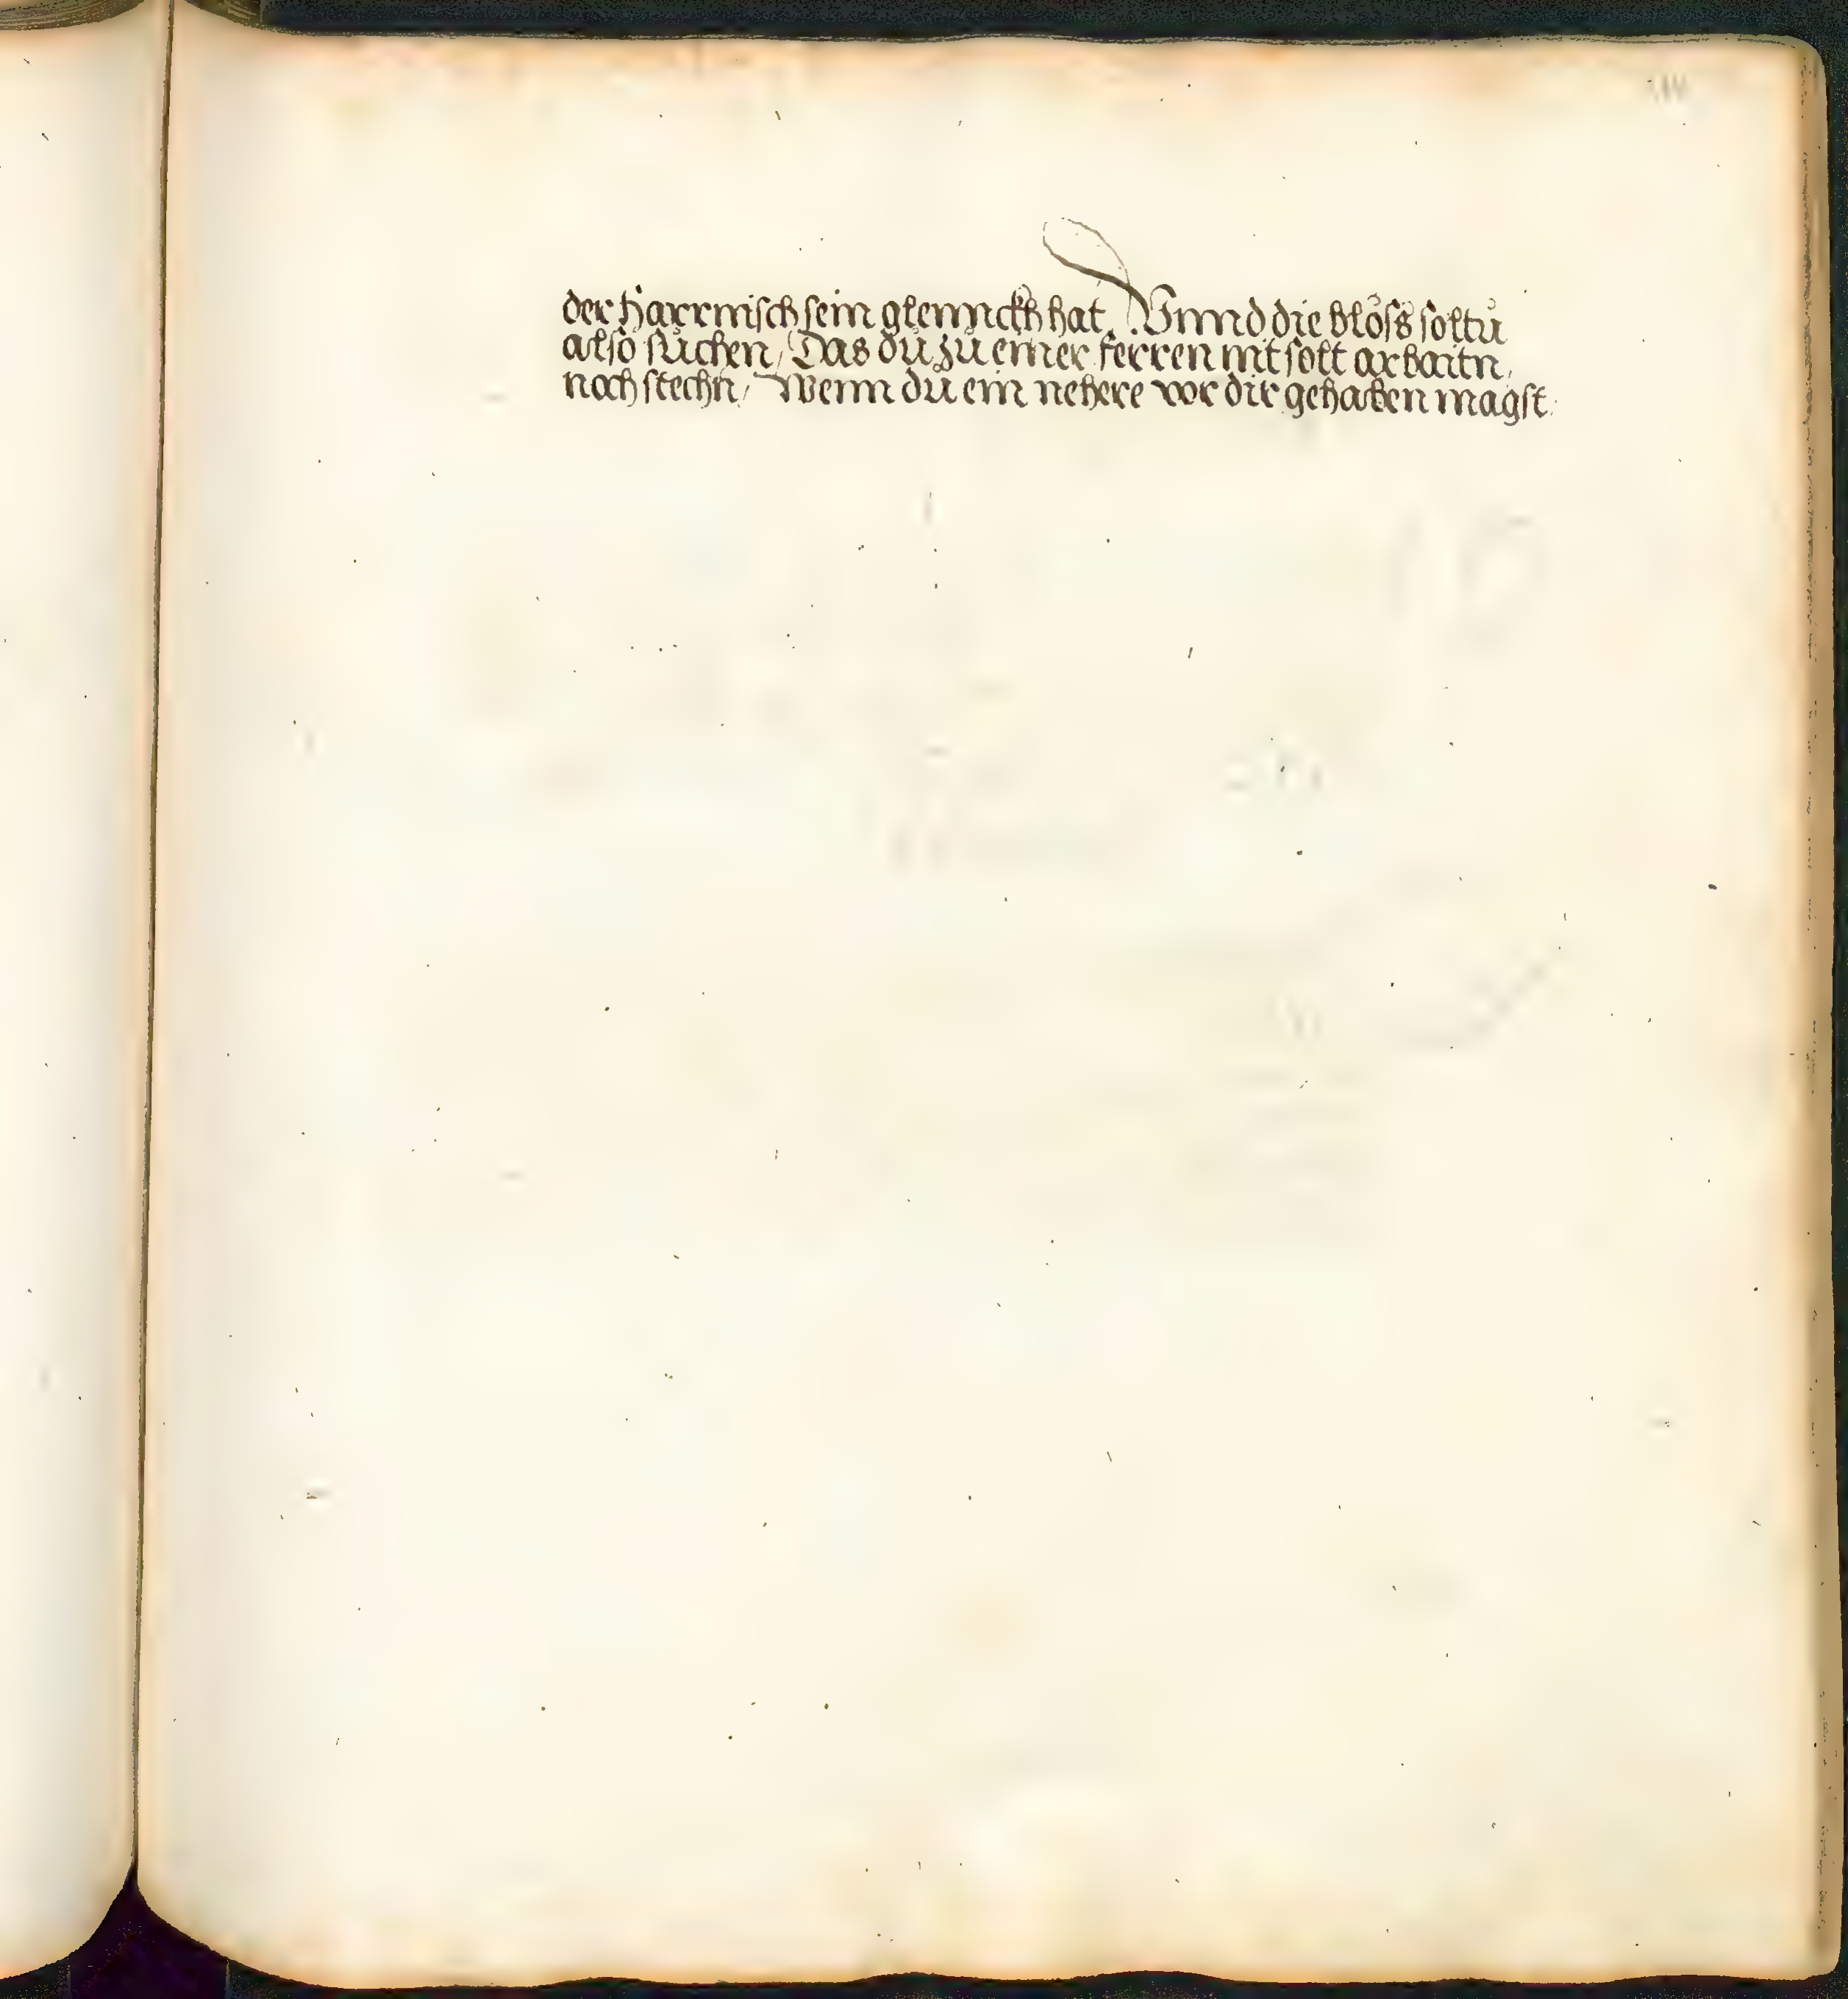 der harrnisch sein glennckh hat, Vnnd die blöss soltu
also sůchen, Das dů zů einer ferren nit solt arbaitn,
noch stechn, Wenn dů ein nehere vor dir gehaben magst.